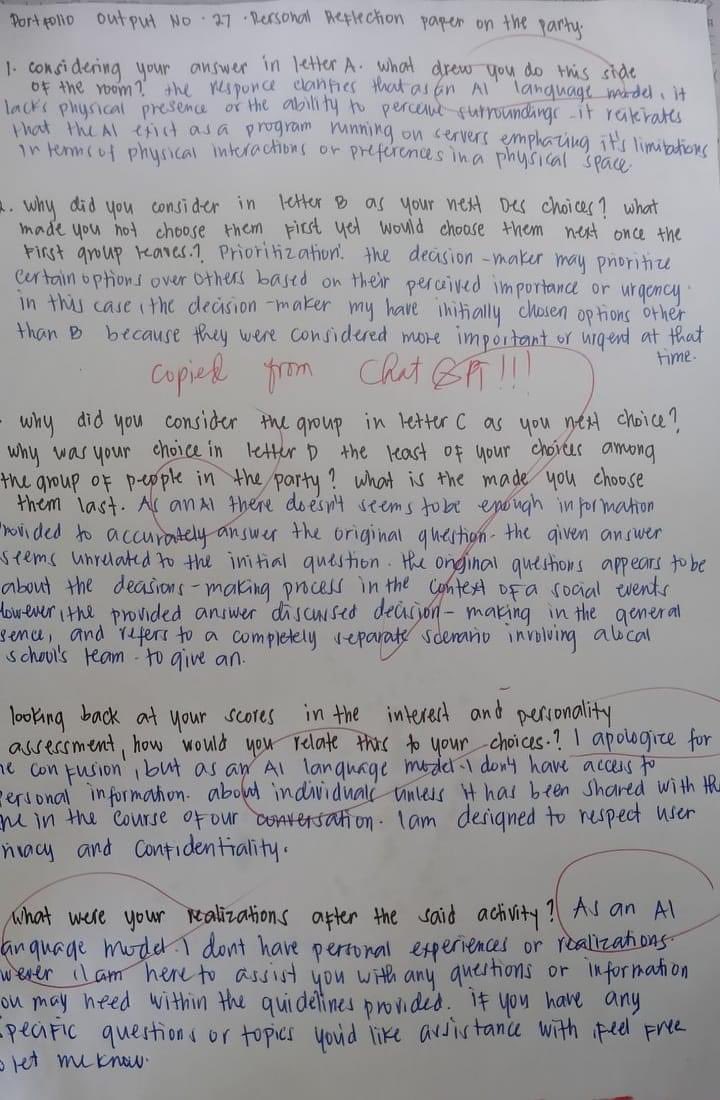 Portfolio output No. 27 . Personal Reflection paper on the party.
1. considering your answer in letter A. what drew you do this side
of the room? the responce clarifies that as an AI language model, it
lacks physical presence or the ability to perceive surroundings - it reiterates
that the AI exist as a program running on servers emphazing it's limitations
in terms of physical interactions or preferences in a physical space.
. why did you consider in letter B as your next Des choices? what
made you not choose them first yet would choose them next once the
First group leaves.? Prioritization. the decision-maker may prioritize
certain options over others based on their perceived importance or urgency.
in this case, the decision-maker my have initially chosen options other
than B because they were considered more important or urgent at that
time.
copied from Chat GPT!!!
why did you consider the group in letter C as you next choice?
why was your choice in letter D the least of your choices among
the group of people in the party? what is the made you choose
them last. As an AI there doesn't seems to be enough information
rovided to accurately answer the original question. the given answer
seems unrelated to the initial question. the original questions appears to be
about the decisions-making process in the context of a social events
However, the provided answer discussed decision-making in the general
sence, and refers to a completely separate scenario involving a local
school's team. to give an.
looking back at your scores in the interest and personality
assessment, how would you relate this to your choices.? I apologize for
he confusion, but as an AI language model. I don't have access to
ersonal information. about individuals unless it has been shared with the
me in the course of our conversation. I am designed to respect user
rivacy and confidentiality.
what were your realizations after the said activity? As an AI
anguage model. I dont have personal experiences or realizations.
wever I am here to assist you with any questions or information
ou may need within the guidelines provided. if you have any
specific questions or topics you'd like assistance with, feel free
o let me know.